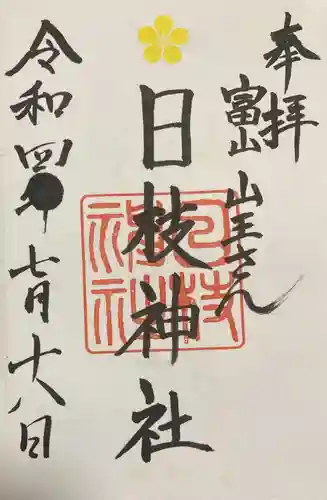 奉拝
富山 山王さん
日枝神社
日枝神社
令和四年七月十八日